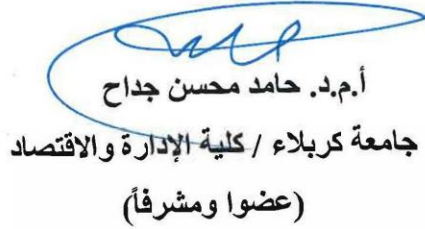 أ.م.د. حامد محسن جداح
جامعة كربلاء / كلية الإدارة والاقتصاد
(عضوا ومشرفاً)